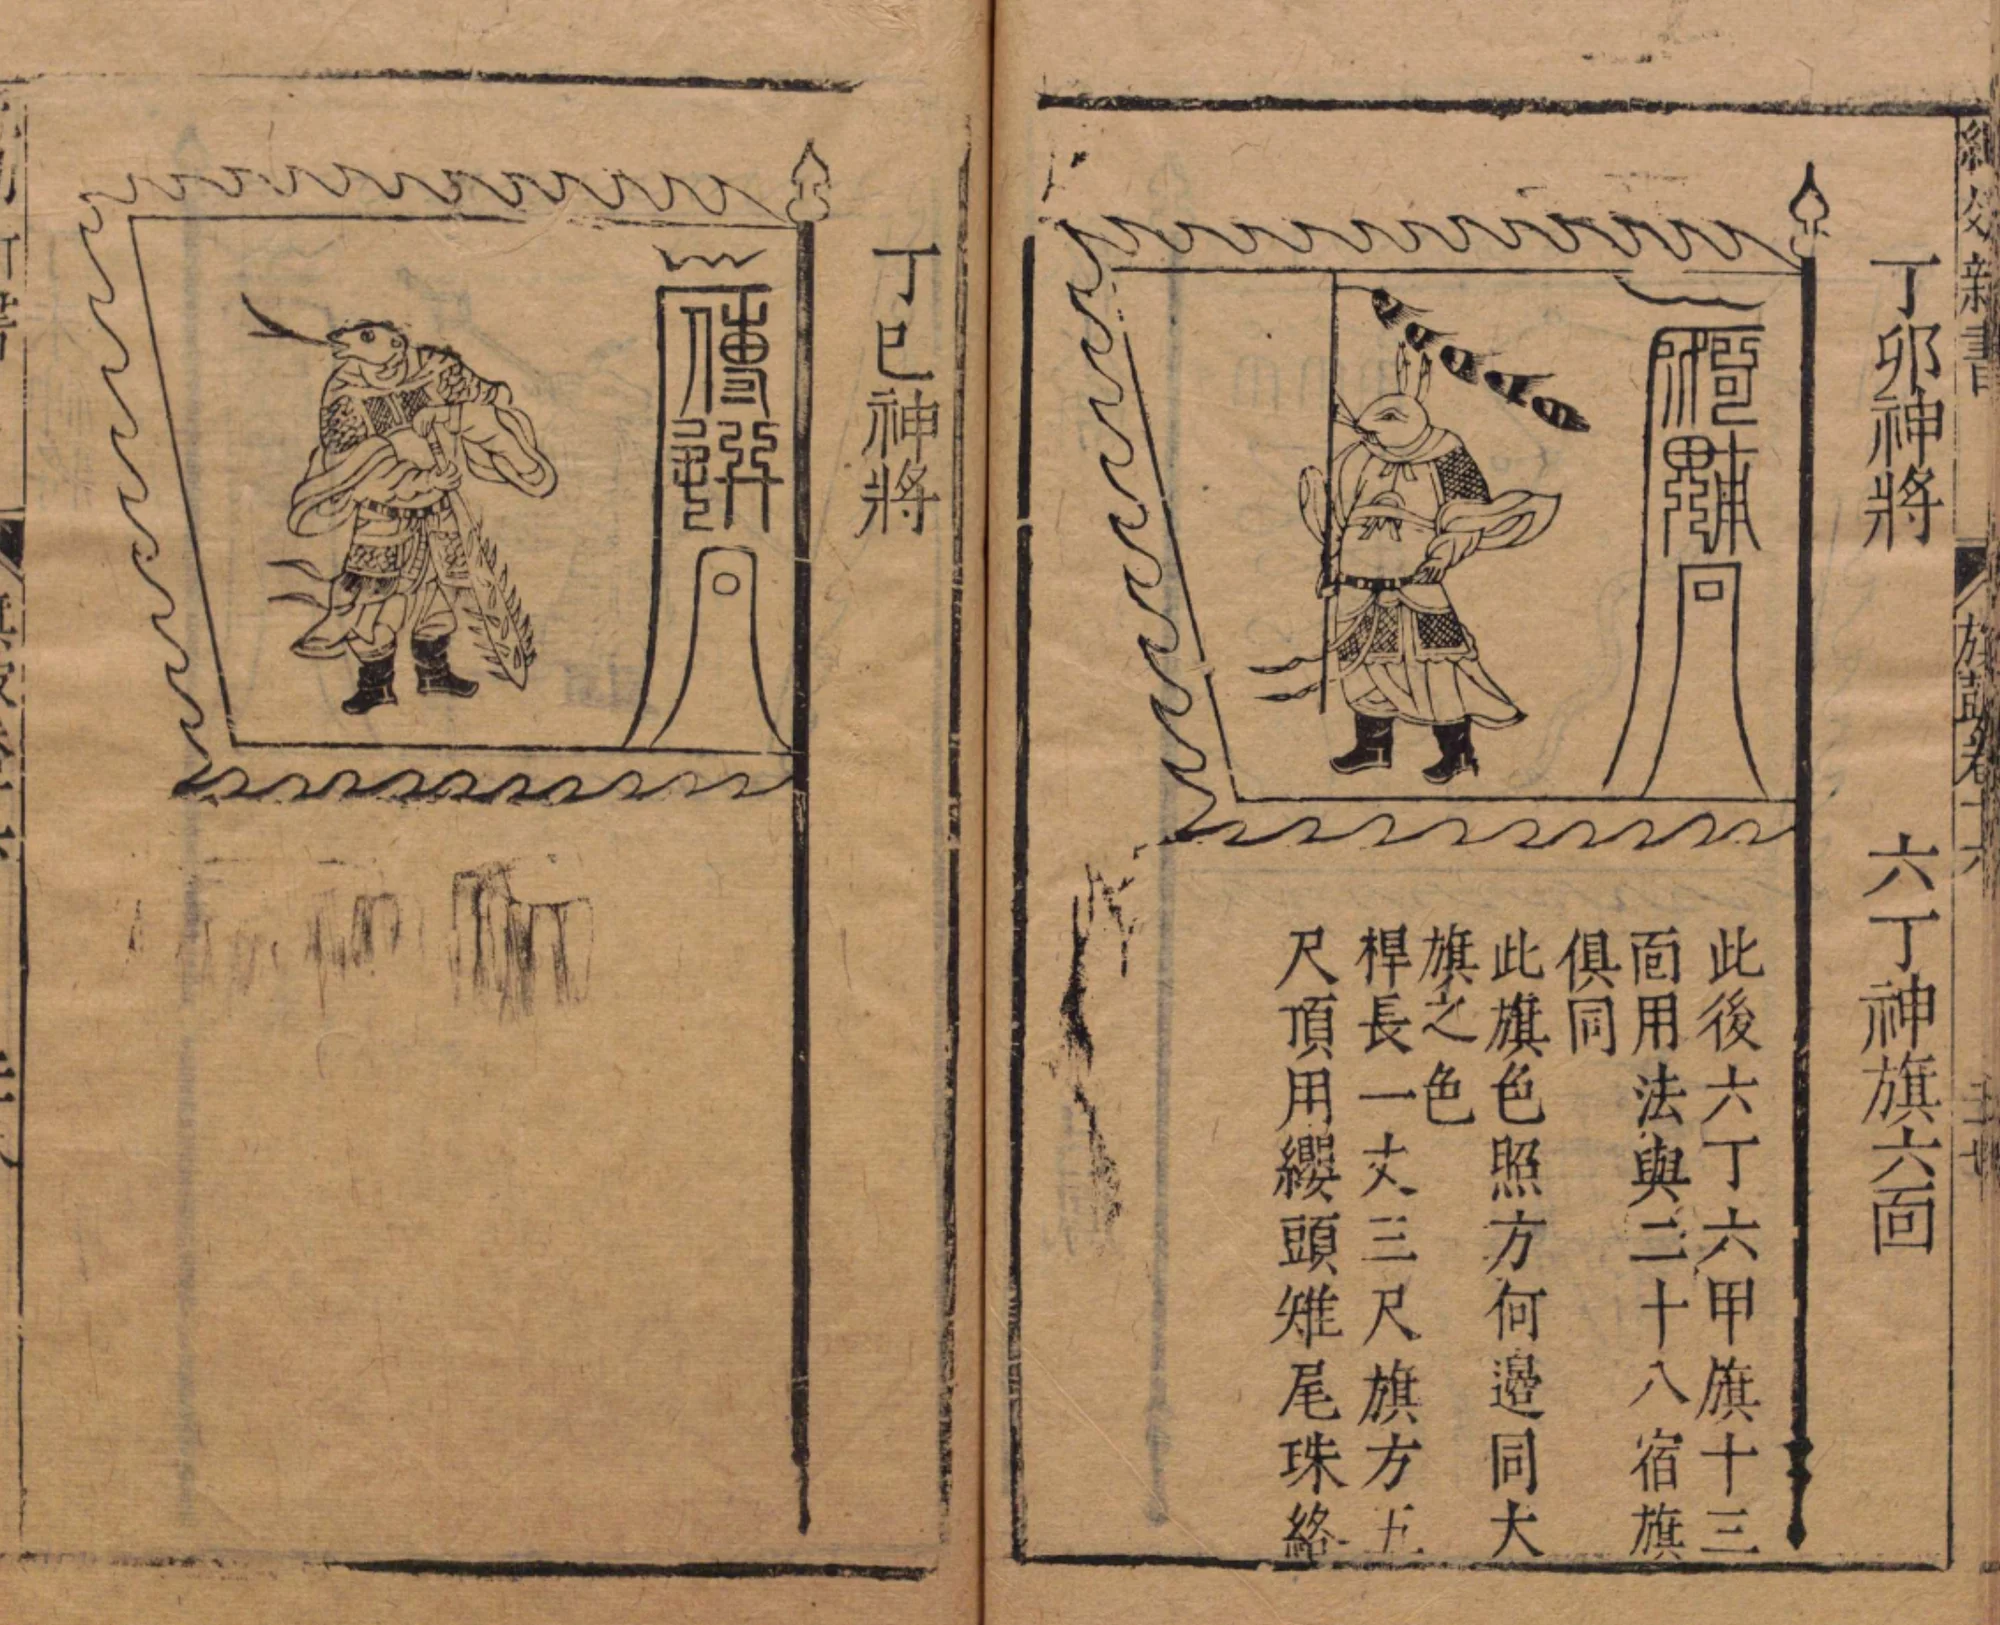 紀效新書
旗鼓卷十六
丁卯神將
六丁神旗六面
此後六丁六甲旗十三
面用法與二十八宿旗
俱同
此旗色照方何邊同大
旗之色
桿長一丈三尺旗方五
尺頂用纓頭雉尾珠絡
丁巳神將